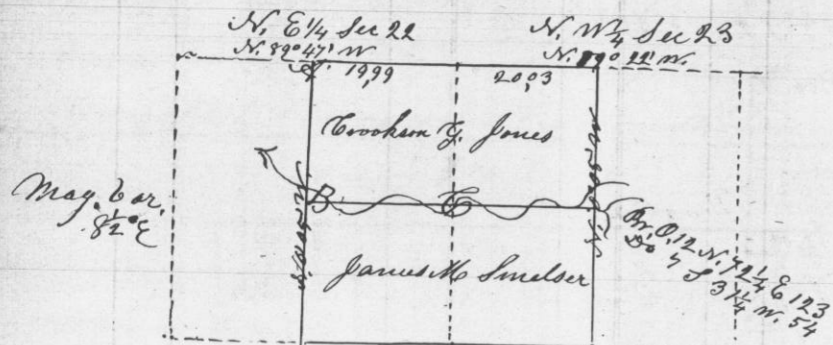 N. E 1/4 Sec 22
N. W 1/4 Sec 23
N. 89° 47' W
N. 22' W.
19,99
20,03
A
Crookson G. Jones
Mag. Var.
8 1/2° E
B
C
James M Smelser
Br. O. 12 N. 72 1/4 E 123
Do 7 S 31 1/4 W. 54